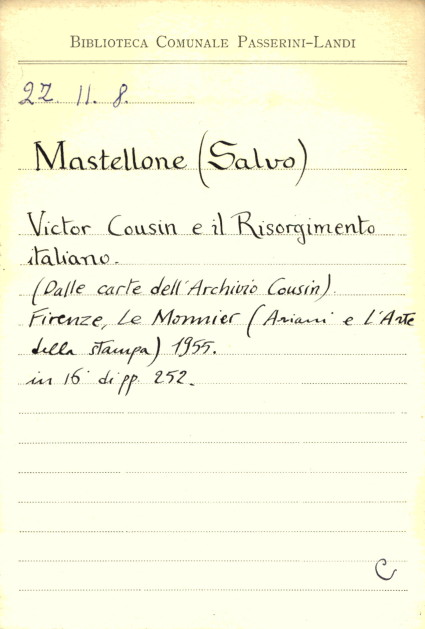 Biblioteca Comunale Passerini-Landi
22. 11. 8.
Mastellone (Salvo)
Victor Cousin e il Risorgimento
italiano.
(Dalle carte dell'Archivio Cousin).
Firenze, Le Monnier (Ariani e L'Arte
della stampa) 1955.
in 16° di pp. 252.
C